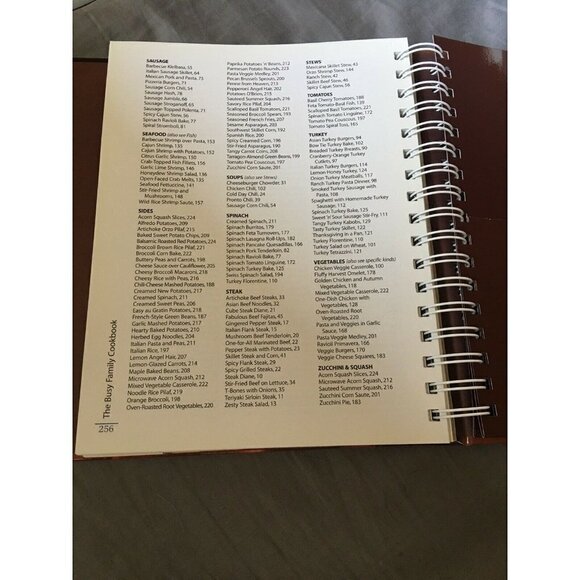 SAUSAGE
Barbecue Kielbasa, 55
Italian Sausage Skillet, 64
Mexican Pork and Pasta, 73
Pizzeria Burgers, 71
Sausage Corn Chili, 54
Sausage Hash, 78
Sausage Jumble, 68
Sausage Stroganoff, 65
Sausage Topped Polenta, 71
Spicy Cajun Stew, 56
Spinach Ravioli Bake, 77
Spiral Stromboli, 81
SEAFOOD (also see Fish)
Barbecue Shrimp over Pasta, 153
Cajun Shrimp, 135
Cajun Shrimp with Potatoes, 152
Citrus Garlic Shrimp, 150
Crab-Topped Fish Fillets, 156
Garlic Lime Shrimp, 146
Honeydew Shrimp Salad, 136
Open-Faced Crab Melts, 135
Seafood Fettuccine, 141
Stir-Fried Shrimp and
Mushrooms, 148
Wild Rice Shrimp Saute, 157
SIDES
Acorn Squash Slices, 224
Alfredo Potatoes, 209
Artichoke Orzo Pilaf, 215
Baked Sweet Potato Chips, 209
Balsamic Roasted Red Potatoes, 224
Broccoli Brown Rice Pilaf, 221
Broccoli Corn Bake, 222
Buttery Peas and Carrots, 198
Cheese Sauce over Cauliflower, 205
Cheesy Broccoli Macaroni, 218
Cheesy Rice with Peas, 216
Chili-Cheese Mashed Potatoes, 188
Creamed New Potatoes, 217
Creamed Spinach, 211
Creamed Sweet Peas, 206
Easy au Gratin Potatoes, 218
French-Style Green Beans, 187
Garlic Mashed Potatoes, 217
Hearty Baked Potatoes, 210
Herbed Egg Noodles, 204
Italian Pasta and Peas, 211
Italian Rice, 197
Lemon Angel Hair, 207
Lemon-Glazed Carrots, 214
Maple Baked Beans, 208
Microwave Acorn Squash, 212
Mixed Vegetable Casserole, 222
Noodle Rice Pilaf, 219
Orange Broccoli, 198
Oven-Roasted Root Vegetables, 220
Paprika Potatoes 'n' Beans, 212
Parmesan Potato Rounds, 223
Pasta Veggie Medley, 201
Pecan Brussels Sprouts, 200
Penne from Heaven, 213
Pepperoni Angel Hair, 202
Potatoes O'Brien, 215
Sauteed Summer Squash, 216
Savory Rice Pilaf, 204
Scalloped Basil Tomatoes, 221
Seasoned Broccoli Spears, 193
Seasoned French Fries, 207
Sesame Asparagus, 203
Southwest Skillet Corn, 192
Spanish Rice, 200
Spicy Creamed Corn, 196
Stir-Fried Asparagus, 190
Tangy Carrot Coins, 208
Tarragon Almond Green Beans, 199
Tomato Pea Couscous, 197
Zucchini Corn Saute, 201
SOUPS (also see Stews)
Cheeseburger Chowder, 31
Chicken Chili, 102
Cold Day Chili, 24
Pronto Chili, 39
Sausage Corn Chili, 54
SPINACH
Creamed Spinach, 211
Spinach Burritos, 179
Spinach Feta Turnovers, 177
Spinach Lasagna Roll-Ups, 182
Spinach Pancake Quesadillas, 166
Spinach Pork Tenderloin, 62
Spinach Ravioli Bake, 77
Spinach Tomato Linguine, 172
Spinach Turkey Bake, 125
Spinach Turkey Salad, 194
Turkey Florentine, 110
STEAK
Artichoke Beef Steaks, 33
Asian Beef Noodles, 32
Cube Steak Diane, 21
Fabulous Beef Fajitas, 45
Gingered Pepper Steak, 17
Italian Flank Steak, 15
Mushroom Beef Tenderloin, 20
One-for-All Marinated Beef, 22
Pepper Steak with Potatoes, 23
Skillet Steak and Corn, 41
Spicy Flank Steak, 29
Spicy Grilled Steaks, 22
Steak Diane, 10
Stir-Fried Beef on Lettuce, 34
T-Bones with Onions, 35
Teriyaki Sirloin Steak, 11
Zesty Steak Salad, 13
STEWS
Mexicana Skillet Stew, 43
Orzo Shrimp Stew, 144
Ranch Stew, 42
Skillet Beef Stew, 46
Spicy Cajun Stew, 56
TOMATOES
Basil Cherry Tomatoes, 188
Feta Tomato Basil Fish, 139
Scalloped Basil Tomatoes, 221
Spinach Tomato Linguine, 172
Tomato Pea Couscous, 197
Tomato Spiral Toss, 165
TURKEY
Asian Turkey Burgers, 94
Bow Tie Turkey Bake, 102
Breaded Turkey Breasts, 90
Cranberry-Orange Turkey
Cutlets, 97
Italian Turkey Burgers, 114
Lemon Honey Turkey, 124
Onion Turkey Meatballs, 117
Ranch Turkey Pasta Dinner, 98
Smoked Turkey Sausage with
Pasta, 108
Spaghetti with Homemade Turkey
Sausage, 112
Spinach Turkey Bake, 125
Sweet 'n' Sour Sausage Stir-Fry, 111
Tangy Turkey Kabobs, 129
Tasty Turkey Skillet, 122
Thanksgiving in a Pan, 121
Turkey Florentine, 110
Turkey Salad on Wheat, 101
Turkey Tetrazzini, 121
VEGETABLES (also see specific kinds)
Chicken Veggie Casserole, 100
Fluffy Harvest Omelet, 178
Golden Chicken and Autumn
Vegetables, 118
Mixed Vegetable Casserole, 222
One-Dish Chicken with
Vegetables, 128
Oven-Roasted Root
Vegetables, 220
Pasta and Veggies in Garlic
Sauce, 168
Pasta Veggie Medley, 201
Ravioli Primavera, 166
Veggie Burgers, 170
Veggie Cheese Squares, 183
ZUCCHINI & SQUASH
Acorn Squash Slices, 224
Microwave Acorn Squash, 212
Sauteed Summer Squash, 216
Zucchini Corn Saute, 201
Zucchini Pie, 183
The Busy Family Cookbook
256